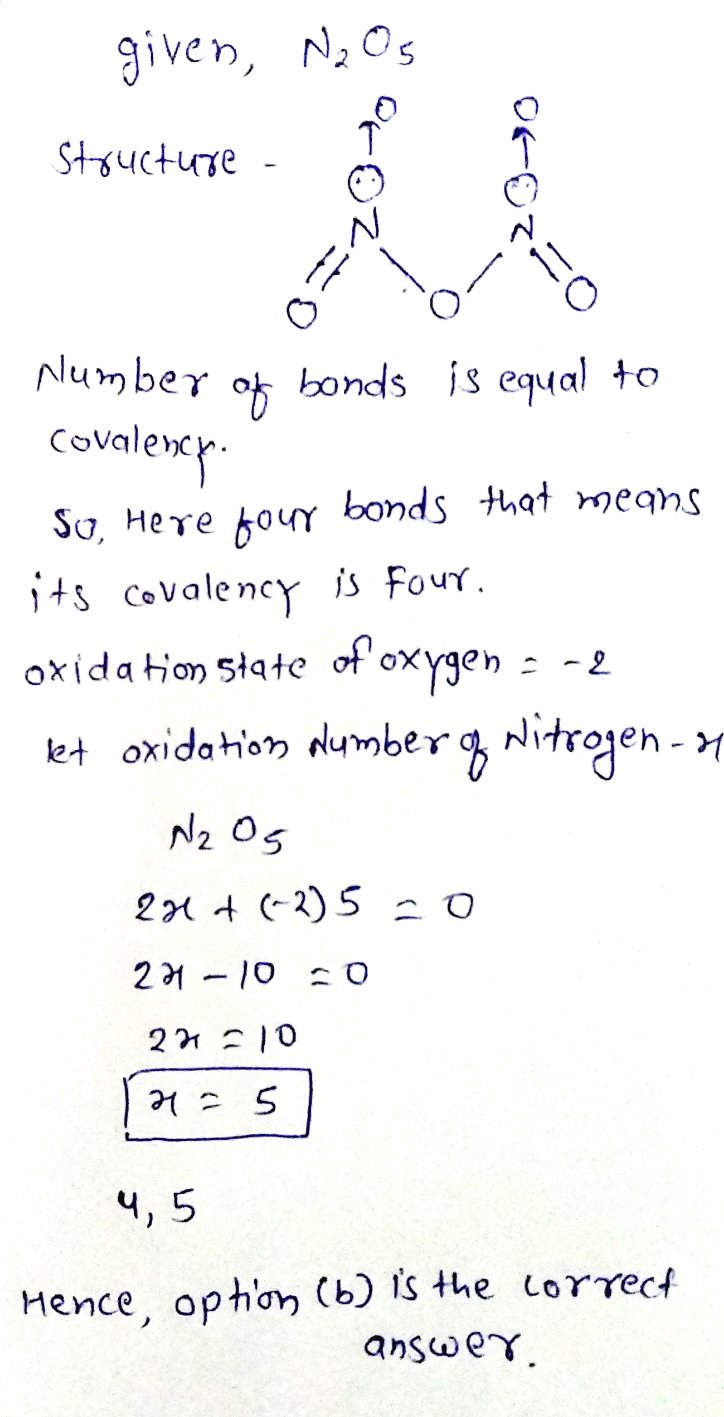 given, N₂O₅
Structure -
O O
↑ ↑
N N
O O O
Number of bonds is equal to
covalency.
So, Here four bonds that means
its covalency is four.
oxidation state of oxygen = -2
let oxidation Number of Nitrogen - x
N₂O₅
2x + (-2) 5 = 0
2x - 10 = 0
2x = 10
x = 5
4, 5
Hence, option (b) is the correct
answer.